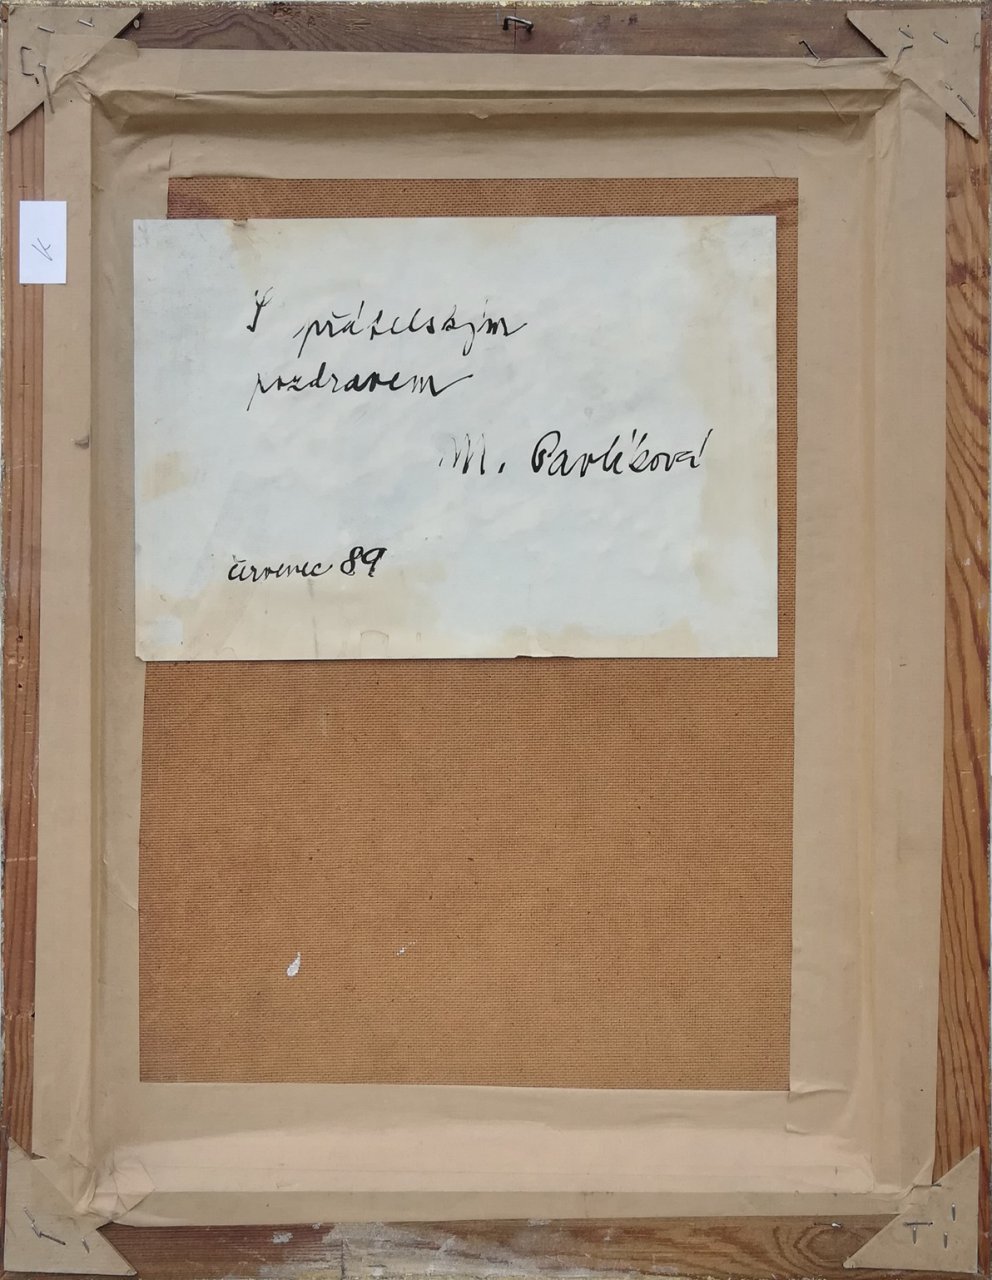 K
S přátelským
pozdravem
M. Pavlíková
červenec 89